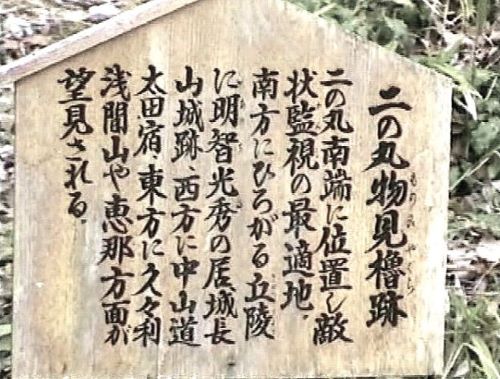 二の丸物見櫓跡
ものみやぐら
二の丸南端に位置し敵
状監視の最適地。
南方にひろがる丘陵
に明智光秀の居城長
山城跡、西方に中山道
太田宿、東方に久々利
浅間山や恵那方面が
望見される。